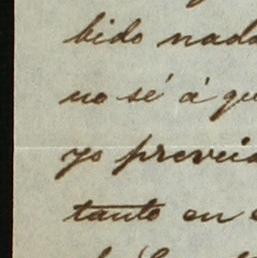 bido nada
no sé á qu
yo preveia
tanto en